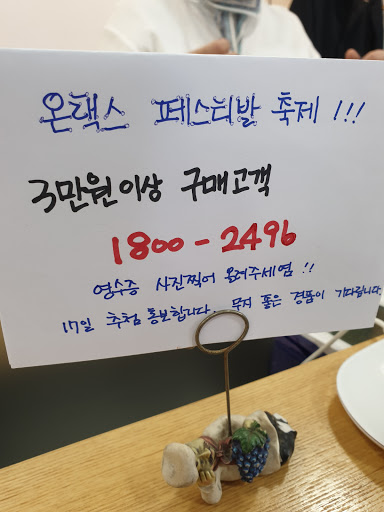 온택스 페스티발 축제 !!!
3만원이상 구매고객
1800-2496
영수증 사진찍어 올려주세염 !!
17일 추첨 통보합니다. 푸지 풀은 경품이 기다립니다.